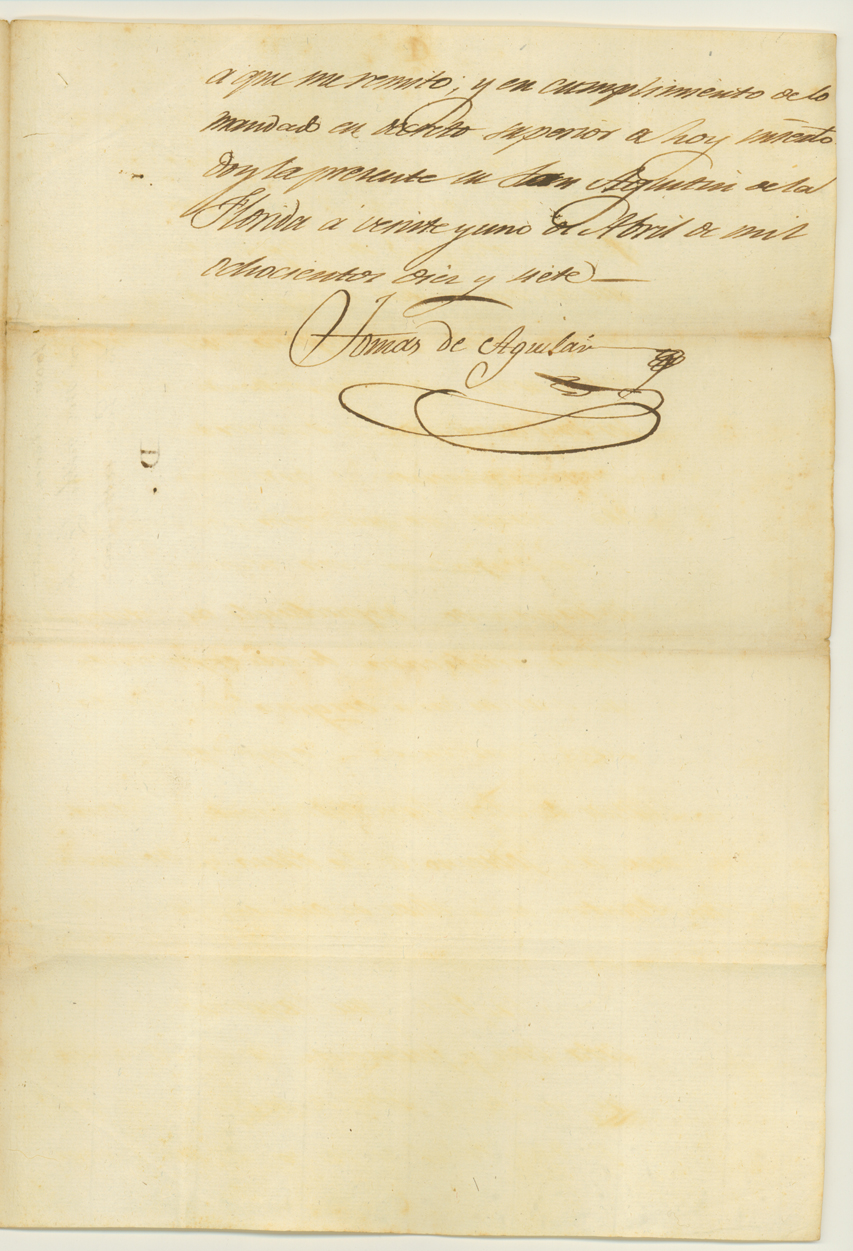 a que me remito; y en cumplimiento de lo
mandado en decreto superior de hoy
doy la presente en San Agustin de la
Florida á veinte y uno de Abril de mil
ochocientos diez y siete
Tomas de Aguilar
D.